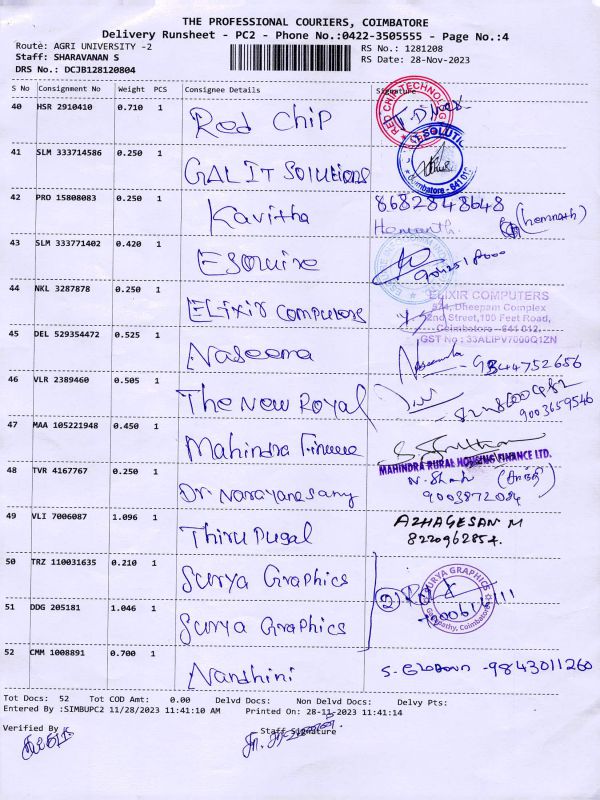 THE PROFESSIONAL COURIERS, COIMBATORE
Delivery Runsheet - PC2 - Phone No.:0422-3505555 - Page No.:4
Route: AGRI UNIVERSITY -2
Staff: SHARAVANAN S
DRS No.: DCJB128120804
RS No.: 1281208
RS Date: 28-Nov-2023
S No Consignment No Weight PCS Consignee Details Signature
40 HSR 2910410 0.710 1 Red Chip
RED CHIP TECHNOLOG
41 SLM 333714586 0.250 1 GALIT SOLUTIONS
SOLUTIO
Coimbatore - 641 012
42 PRO 15808083 0.250 1 Kavitha 8682848648
Hemanth. (hemnath)
43 SLM 333771402 0.420 1 Esquire
44 NKL 3287878 0.250 1 ELixir computers
ELIXIR COMPUTERS
Dheepam Complex
2nd Street, 100 Feet Road,
Coimbatore - 641 012.
GST No : 33ALIPV7000Q1ZN
45 DEL 529354472 0.525 1 Naseema Naseema - 9344752656
46 VLR 2389460 0.505 1 The New Royal
9003659546
47 MAA 105221948 0.450 1 Mahindra Finance
MAHINDRA RURAL HOUSING FINANCE LTD.
48 TVR 4167767 0.250 1 Dr Narayanasamy N. Shah
9003872084
49 VLI 7006087 1.096 1 Thiru Pugal AZHAGESAN M
8220962854.
50 TRZ 110031635 0.210 1 Surya Graphics
51 DDG 205181 1.046 1 Surya Graphics
SURYA GRAPHICS
Ganapathy, Coimbatore
52 CMM 1008891 0.700 1 Nandhini -9843011260
Tot Docs: 52 Tot COD Amt: 0.00 Delvd Docs: Non Delvd Docs: Delvy Pts:
Entered By :SIMBUPC2 11/28/2023 11:41:10 AM Printed On: 28-11-2023 11:41:14
Verified By Staff Signature